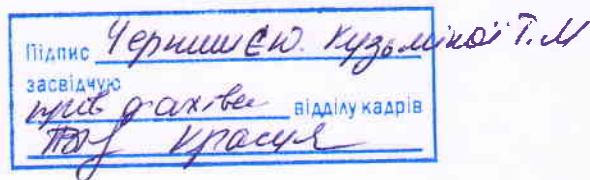 Підпис Черниш Є.Ю. Кузьміної Т.М
засвідчую
пров фахівець відділу кадрів